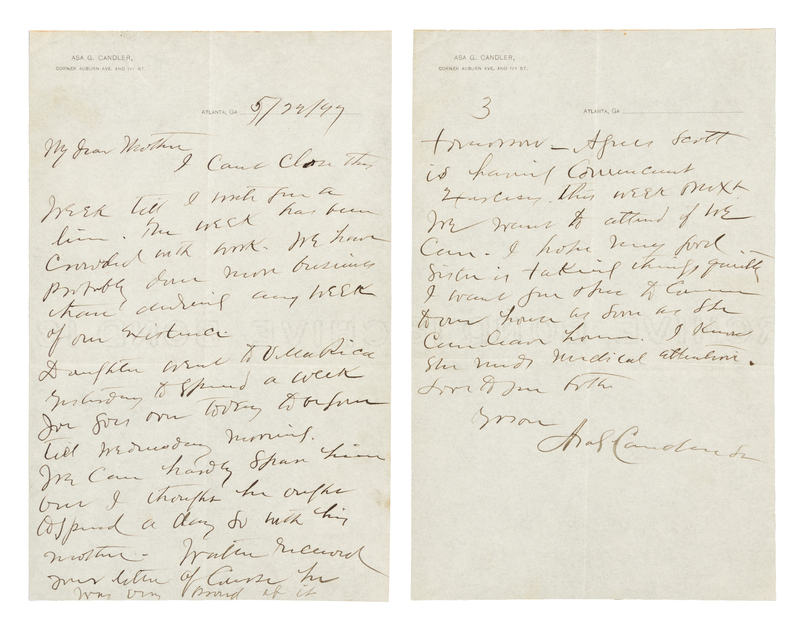 ASA G. CANDLER,
CORNER AUBURN AVE. AND IVY ST.
ATLANTA, GA 5/29/99
My Dear Mother
I cant close this
week till I write you a
line. The week has been
crowded with work. We have
probably done more business
than during any week
of our existence.
Daughter went to Villa Rica
yesterday to spend a week
Joe goes over today to
till Wednesday morning.
We can hardly spare him
but I thought he ought
to spend a day or so with his
mother. Walter received
your letter of course he
was very proud of it
ASA G. CANDLER,
CORNER AUBURN AVE. AND IVY ST.
ATLANTA, GA
3
tomorrow - Agnes Scott
is having
Exercises this week & next
We want to attend if we
can. I hope my good
Sister is taking things quietly
I want you & her to come
to our house as soon as she
can leave home. I know
she needs medical attention.
Love to you both
Yr son
Asa G Candler Sr